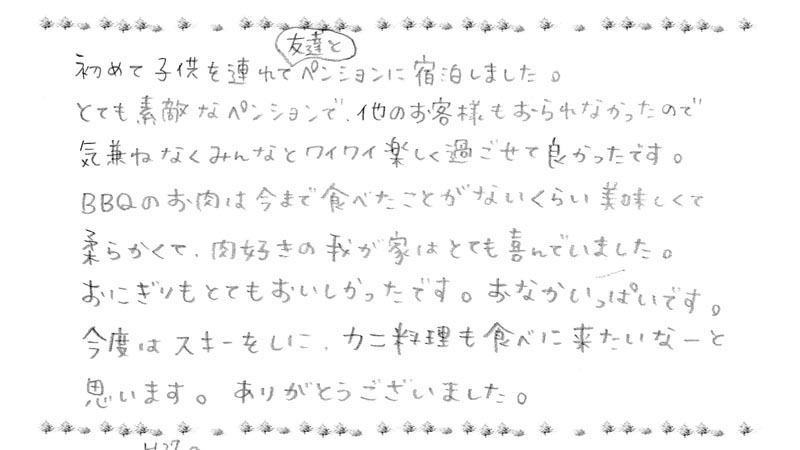 友達と
初めて子供を連れてペンションに宿泊しました。
とても素敵なペンションで、他のお客様もおられなかったので
気兼ねなくみんなとワイワイ楽しく過ごせて良かったです。
BBQのお肉は今まで食べたことがないくらい美味しくて
柔らかくて、肉好きの我が家はとても喜んでいました。
おにぎりもとてもおいしかったです。おなかいっぱいです。
今度はスキーをしに、カニ料理も食べに来たいなーと
思います。ありがとうございました。